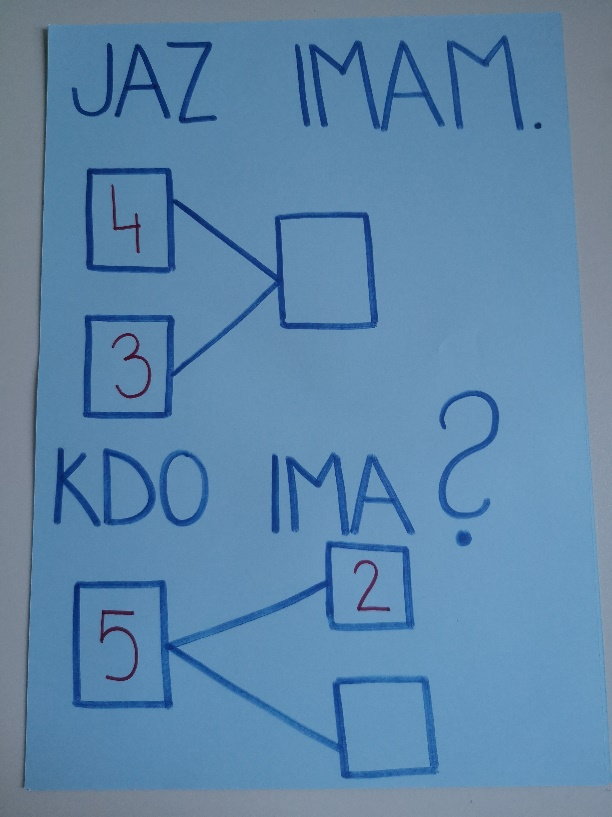 JAZ IMAM.
4
3
KDO IMA?
2
5